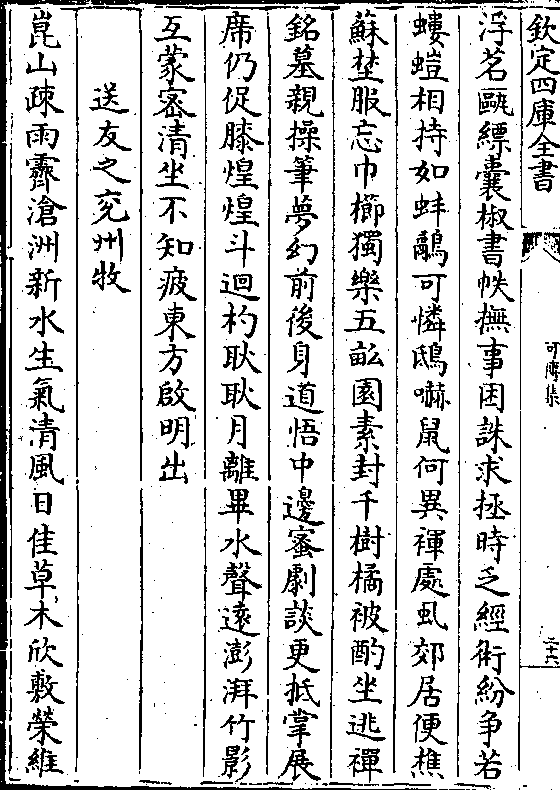 欽定四庫全書
可傳集
二十六
浮茗甌縹囊椒書帙撫事困誅求拯時乏經術紛争若
螻螘相持如蚌鷸可憐鴟嚇鼠何異褌處虱郊居便樵
蘇埜服忘巾櫛獨樂五畝園素封千樹橘被酌坐逃禪
銘墓親操筆夢幻前後身道悟中邊蜜劇談更抵掌展
席仍促膝煌煌斗迴杓耿耿月離畢水聲遠澎湃竹影
互蒙密清坐不知疲東方啟明出
送友之兖州牧
崑山疎雨霽滄洲新水生氣清風日佳草木欣敷榮維